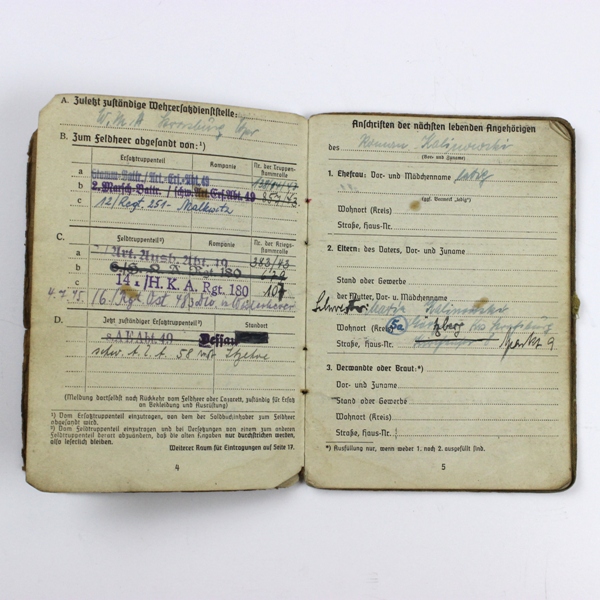 A. Zuletzt zuständige Wehrersatzdienststelle:
W. M. A
B. Zum Feldheer abgesandt von: ¹)
Ersatztruppenteil Kompanie Nr. der Truppen-
stammrolle
a Stamm-Battr. / Art.-Ers.-Abt. 49
b 2. Marsch-Battr. / Ers. Abt. 49
c 12/Regt. 251 - Malkwitz
C. Feldtruppenteil²) Kompanie Nr. der Kriegs-
stammrolle
a Art. Ausb. Abt. 19 343/43
b 180
c 14. / H. K. A. Rgt. 180 107
4.2.45. 16./Rgt. Ost
D. Jetzt zuständiger Ersatztruppenteil³) Standort
Dessau
schw. A. E. A. 58 Itzehoe
(Meldung dortselbst nach Rückkehr vom Feldheer oder Lazarett, zuständig für Ersatz
an Bekleidung und Ausrüstung)
¹) Vom Ersatztruppenteil einzutragen, von dem der Soldbuchinhaber zum Feldheer
abgesandt wird.
²) Vom Feldtruppenteil einzutragen und bei Versetzungen von einem zum anderen
Feldtruppenteil derart abzuändern, daß die alten Angaben nur durchstrichen werden,
also leserlich bleiben.
Weiterer Raum für Eintragungen auf Seite 17.
4
Anschriften der nächsten lebenden Angehörigen
des Roman Kalinowski
(Vor- und Zuname)
1. Ehefrau: Vor- und Mädchenname ledig
(ggf. Vermerk „ledig")
Wohnort (Kreis)
Straße, Haus-Nr.
2. Eltern: des Vaters, Vor- und Zuname
Stand oder Gewerbe
der Mutter, Vor- u. Mädchenname
Schwester: Maria Kalinowski
Wohnort (Kreis)
Straße, Haus-Nr. 9
3. Verwandte oder Braut:*)
Vor- und Zuname
Stand oder Gewerbe
Wohnort (Kreis)
Straße, Haus-Nr.
*) Ausfüllung nur, wenn weder 1. noch 2. ausgefüllt sind.
5